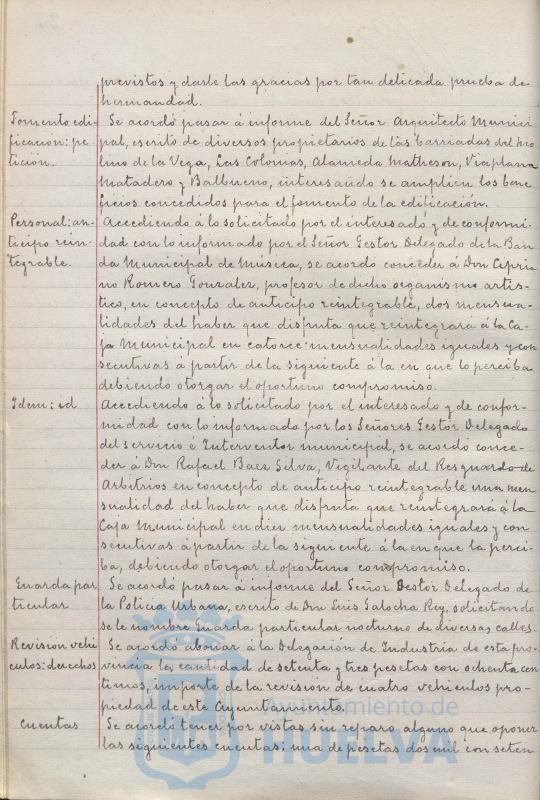 previstos y darle las gracias por tan delicada prueba de
hermandad.
Fomento edi-
ficacion: pe
tición.
Se acordó pasar á informe del Señor Arquitecto Munici
pal, escrito de diversos propietarios de las barriadas del Mo
lino de la Vega, Las Colonias, Alameda Matheson, Viaplana
Matadero y Balbueno, interesando se amplien los bene
ficios concedidos para el fomento de la edificación.
Personal: an-
ticipo rein-
tegrable.
Accediendo á lo solicitado por el interesado y de conformi-
dad con lo informado por el Señor Gestor Delegado de la Ban
da Municipal de Música, se acordó conceder á Don Cipria
no Romero Gonzalez, profesor de dicho organismo artis-
tico, en concepto de anticipo reintegrable, dos mensua-
lidades del haber que disfruta que reintegrará á la Ca-
ja Municipal en catorce mensualidades iguales y con
secutivas á partir de la siguiente á la en que lo perciba
debiendo otorgar el oportuno compromiso.
Idem: id
Accediendo á lo solicitado por el interesado y de confor-
midad con lo informado por los Señores Gestor Delegado
del servicio é Interventor municipal, se acordó conce-
der á Don Rafael Baez Silva, Vigilante del Resguardo de
Arbitrios en concepto de anticipo reintegrable una men
sualidad del haber que disfruta que reintegrará á la
Caja Municipal en diez mensualidades iguales y con
secutivas á partir de la siguiente á la en que la perci-
ba, debiendo otorgar el oportuno compromiso.
Guarda par
ticular
Se acordó pasar á informe del Señor Gestor Delegado de
la Policia Urbana, escrito de Don Luis Galocha Rey, solicitando
se le nombre Guarda particular nocturno de diversas calles.
Revision vehi
culos: derechos
Se acordó abonar á la Delegación de Industria de esta pro-
vincia la cantidad de setenta y tres pesetas con ochenta cen
timos, importe de la revisión de cuatro vehiculos pro-
piedad de este Ayuntamiento.
Cuentas
Se acordó tener por vistas sin reparo alguno que oponer
las siguientes cuentas: una de pesetas dos mil con seten
Ayuntamiento de
HUELVA